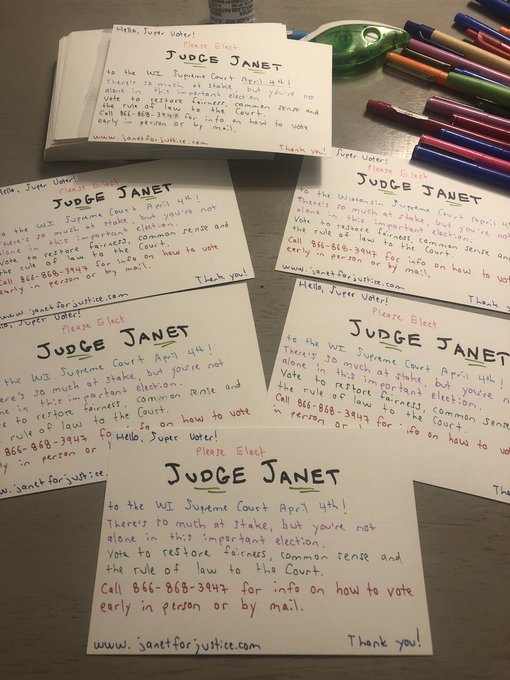 Hello, Super Voter!
Please Elect
JUDGE JANET
to the WI Supreme Court April 4th!
There's so much at stake, but you're not
alone in this important election.
Vote to restore fairness, common sense and
the rule of law to the Court.
Call 866-868-3947 for info on how to vote
early in person or by mail.
www.janetforjustice.com
Thank you!
Hello, Super Voter!
Please Elect
JUDGE JANET
to the WI Supreme Court April 4th!
There's so much at stake, but you're not
alone in this important election.
Vote to restore fairness, common sense and
the rule of law to the Court.
Call 866-868-3947 for info on how to vote
early in person or by mail.
www.janetforjustice.com
Thank you!
Super Voter!
Please Elect
JUDGE JANET
to the Wisconsin Supreme Court April 4th
There's so much at stake, but you're
alone in this important election.
Vote to restore fairness, common sense
the rule of law to the Court.
Call 866-868-3947 for info on how to
early in person or by mail.
www.janetforjustice.com
Thank
Super Voter!
Please Elect
JUDGE JANET
the WI Supreme Court April 4th!
so much at stake, but you're not
in this important election.
to restore fairness, common sense and
rule of law to the Court.
866-868-3947 for info on how to vote
in person or
www.janetforjustice.
Hello, Super Voter!
Please Elect
JUDGE JANET
to the WI Supreme Court April 4th!
There's so much at stake, but you're
alone in this important election.
Vote to restore fairness, common sense
the rule of law to the Court.
Call 866-868-3947 for info on how to
in person or
Hello, Super Voter!
Please Elect
JUDGE JANET
to the WI Supreme Court April 4th!
There's so much at stake, but you're not
alone in this important election.
Vote to restore fairness, common sense and
the rule of law to the Court.
Call 866-868-3947 for info on how to vote
early in person or by mail.
www.janetforjustice.com
Thank you!